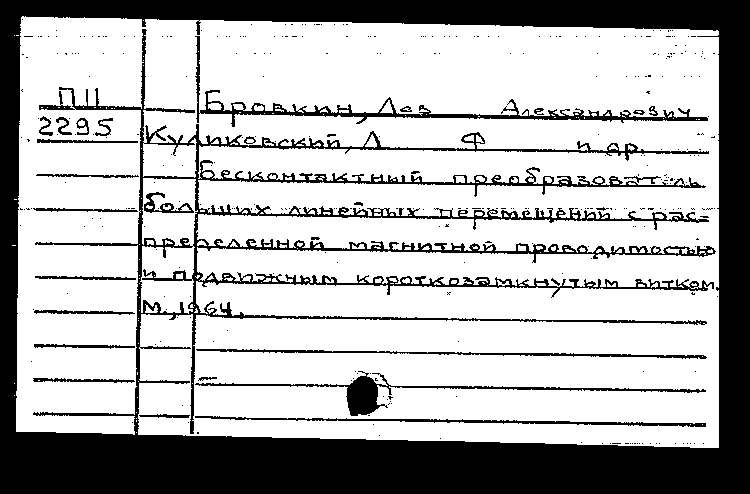 П11
2295
Бровкин, Лев Александрович
Куликовский, Л Ф и др.
Бесконтактный преобразователь
больших линейных перемещений с рас=
пределенной магнитной проводимостью
и подвижным короткозамкнутым витком.
М., 1964.